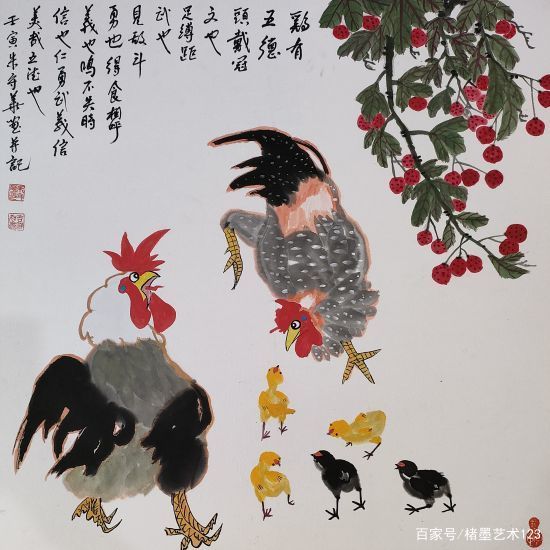 鷄有
五德
頭戴冠
文也
足縛距
武也
見敌斗
勇也得食相呼
義也鳴不失時
信也仁勇武義信
美哉五德也
壬寅朱守義画并記
百家号/楮墨艺术123